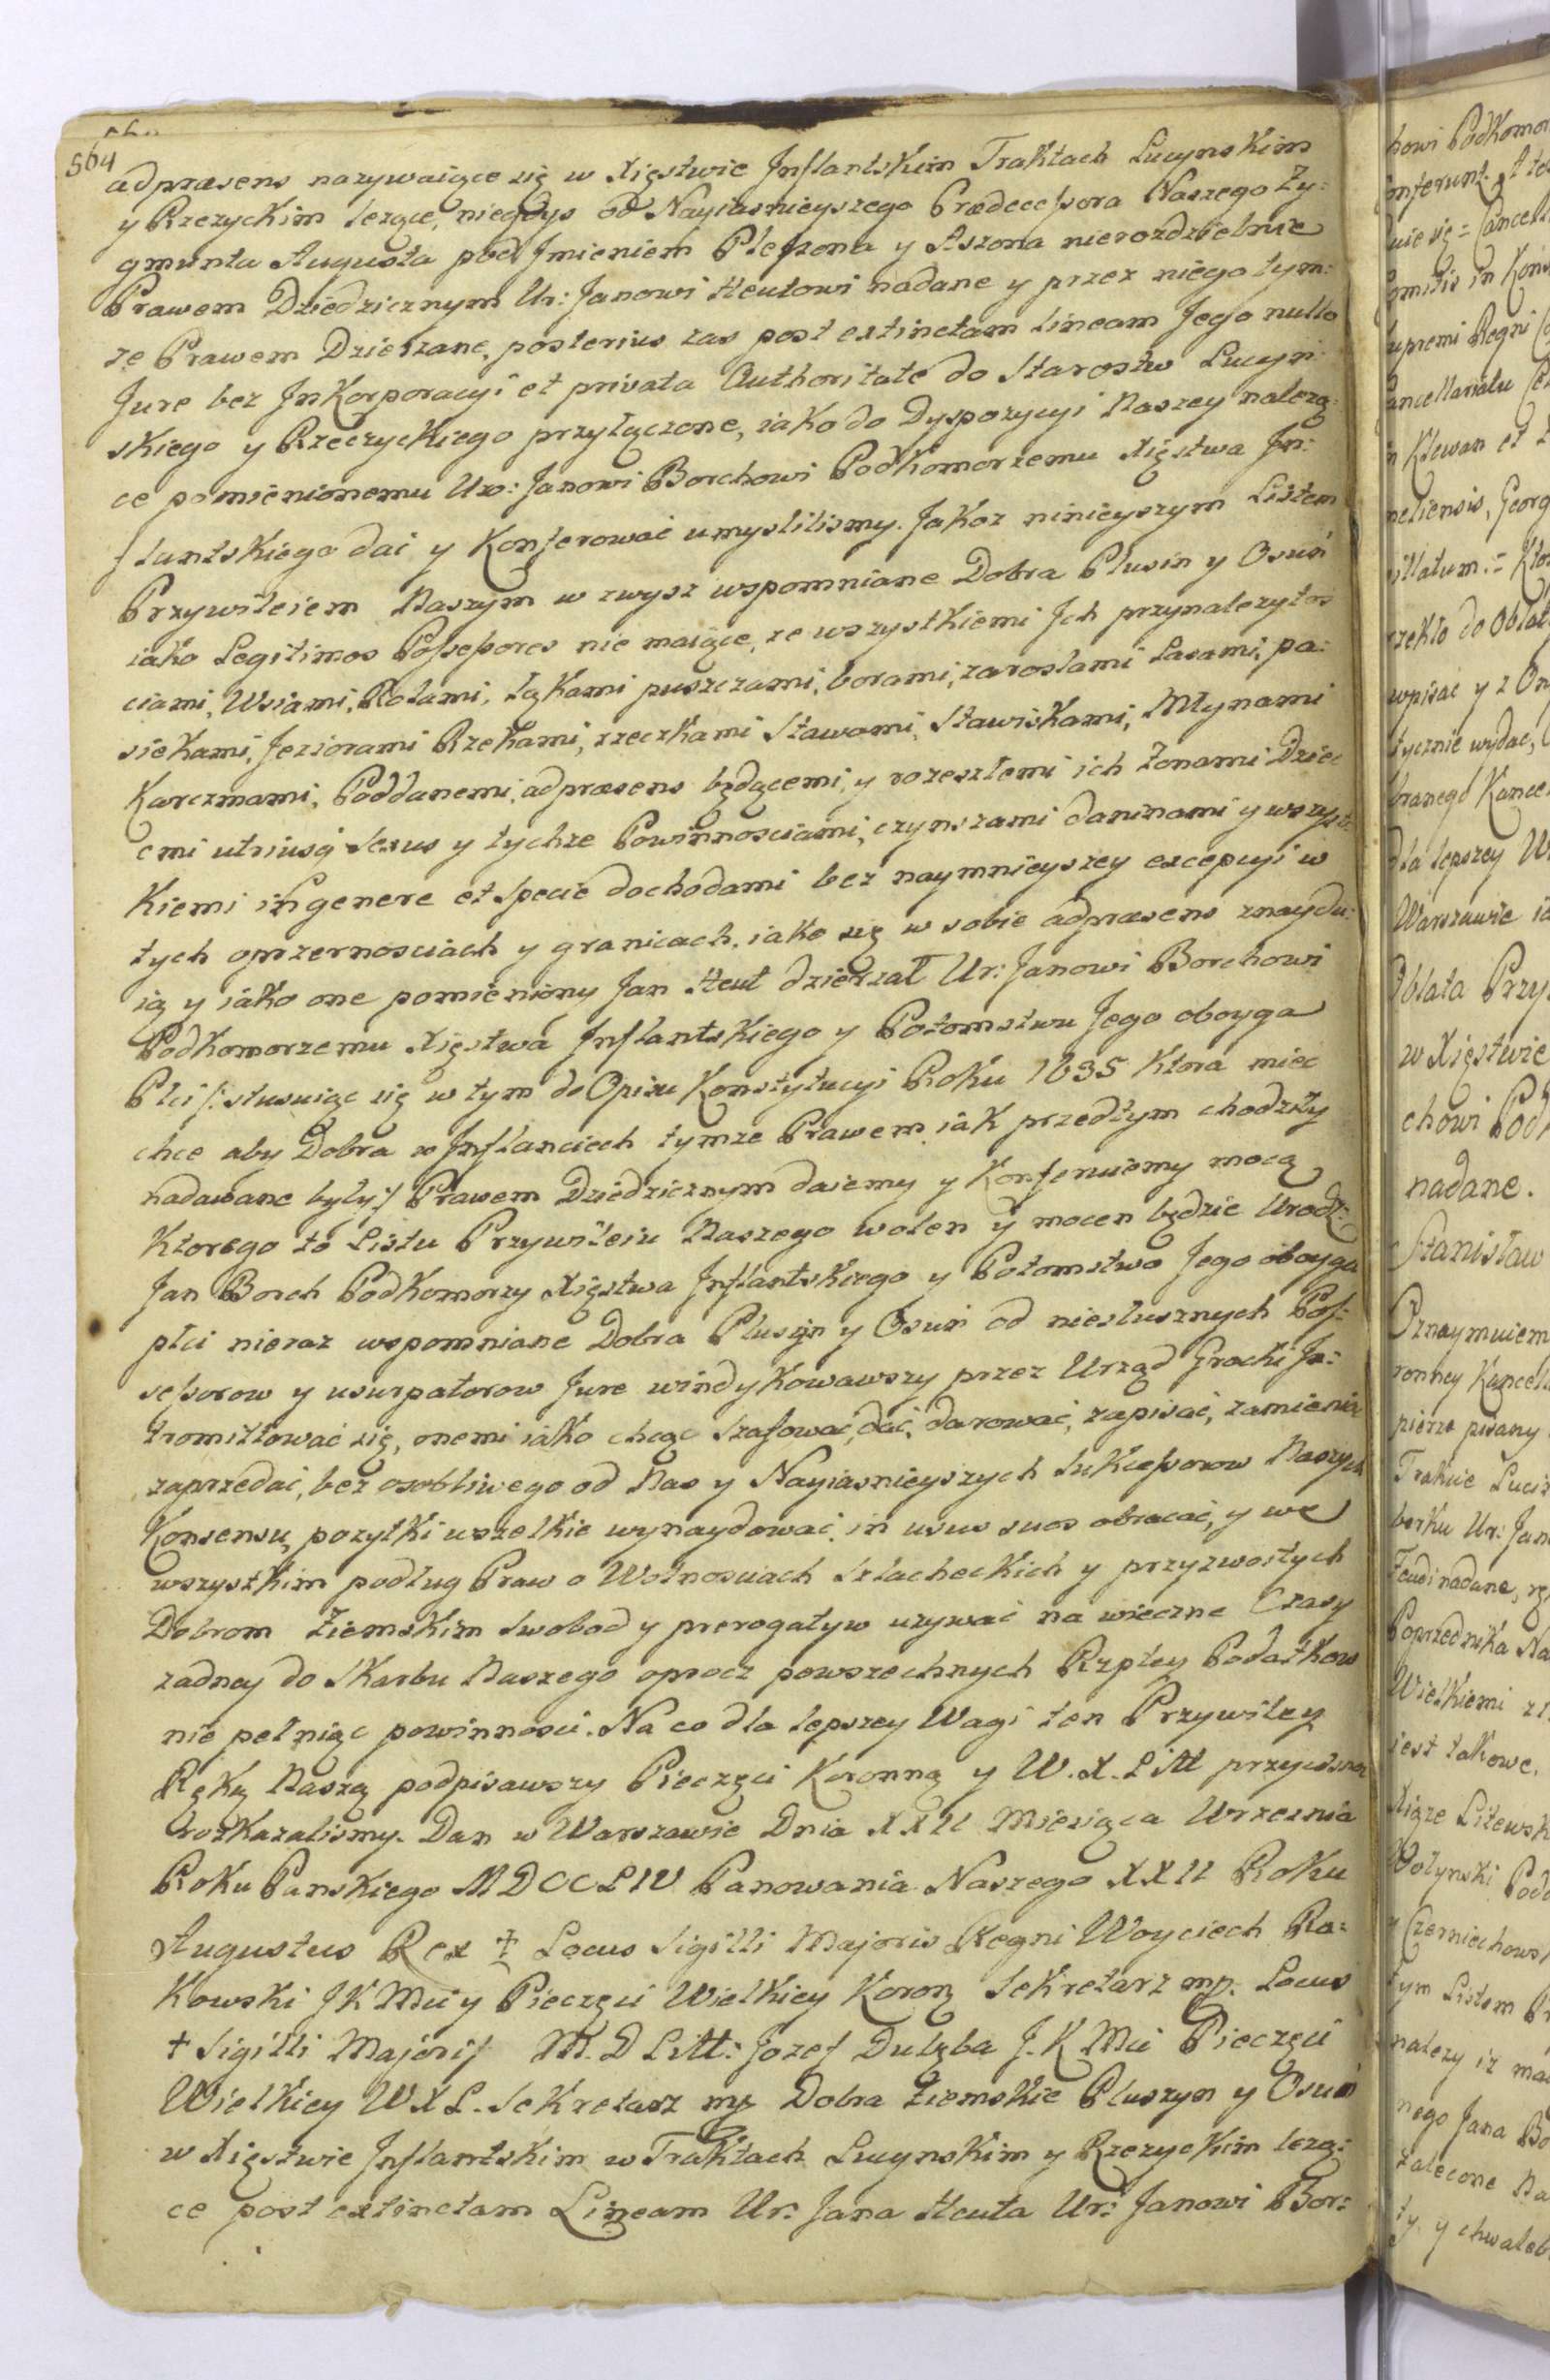 564
adpræsens nazywaiące się w Xięstwie Inflantskim Traktach Lucynskim
y Rzezyckim lezące, niegdys od Nayiasnieyszego Prædecessora Naszego Zy:
gmunta Augusta pod Jmieniem Plessona y Aszona nierozdzielnie
Prawem Dziedzicznym Ur: Janowi Heutowi nadane y przez niego tym:
ze Prawem Dzierzane, posterius zas post extinctam lineam Jego nullo
Jure bez Jnkorporacyi et privata Authoritate do Starostw Lucyn:
skiego y Rzeczyckiego przyłączone, iako do Dyspozycyi Naszey nalezą:
ce pomienionemu Uro: Janowi Borchowi Podkomorzemu Xięstwa Jn:
flantskiego dać y Konferować umyslilismy. Jakoz ninieyszym Listem
Przywileiem Naszym w zwysz wspomniane Dobra Plusin y Osuń
iako Legitimos Possessores nie maiące, ze wszystkiemi Jch przynalezytos
ciami, Wsiami, Rolami, łąkami puszczami, borami, zaroslami Lasami, pa:
siekami, Jeziorami Rzekami, rzeczkami Stawami, Stawiskami, Młynami
Karczmami, Poddanemi, adpræsens będącemi, y rozeszłemi ich Zonami Dziec
cmi utriusq Sexus y tychze Powinnosciami, czynszami daninami y wszyst:
kiemi ingenere et specie dochodami bez naymnieyszey excepcyi w
tych oprzernosciach y granicach, iako się w sobie adpræsens znaydu:
ią y iako one pomieniony Jan Heut dzierzał Ur: Janowi Borchowi
Podkomorzemu Xięstwa Jnflantskiego y Potomstwu Jego oboyga
Płci /: stusuiąc się w tym do Opisu Konstytucyi Roku 1635 Ktora miec
chce aby Dobra w Jnflanciech tymze Prawem iak przedtym chodziły
nadawane były :/ Prawem Dziedzicznym daiemy y Konferuiemy mocą
Ktorego to Listu Przywileiu Naszego wolen y mocen będzie Urodz:
Jan Borch Podkomorzy Xięstwa Jnflantskiego y Potomstwo Jego oboyga
płci nieraz wspomniane Dobra Plusyn y Osuń od niesłusznych Pos:
sessorow y usurpatorow Jure windykowawszy przez Urząd Grocki Jn:
tromittować się, onemi iako chcąc szafować, dać, darować, zapisać, zamienić
zaprzedać, bez osobliwego od Nas y Nayiasnieyszych Sukcessorow Naszych
Konsensu, pozytki wszelkie wynaydować, in usus suos obracać, y we
wszystkim podług Praw o Wolnosciach Szlacheckich y przyzwoitych
Dobrom Ziemskim Swobod y prerogatyw uzywać na wieczne Czasy
zadney do Skarbu Naszego oprocz powszechnych Rzptey Podatkow
nie pełniąc powinnosci. Na co dla lepszey Wagi ten Przywiley
Ręką Naszą podpisawszy Pieczęci Koronną y W. X. Litt przycisnąć
rozkazalismy. Dan w Warszawie Dnia XXII Miesiąca Wrzesnia
Roku Panskiego MDCCLIV Panowania Naszego XXII Roku
Augustus Rex + Locus Sigilli Majoris Regni Woyciech Ra:
kowski JK Mci y Pieczęci Wielkiey Koron: Sekretarz mp. Locus
+ Sigilli Majoris M. D Litt: Jozef Dulęba J. K Mci Pieczęci
Wielkiey W X L. Sekretarz mp Dobra Ziemskie Pluszyn y Osuń
w Xięstwie Jnflantskim w Traktach Lucynskim y Rzezyckim lezą:
ce post extinctam Lineam Ur: Jana Heuta Ur: Janowi Bor:
howi Podkomor
w Xięstwie
chowi Pod
nadane.
Stanisław
Oznaymuiem